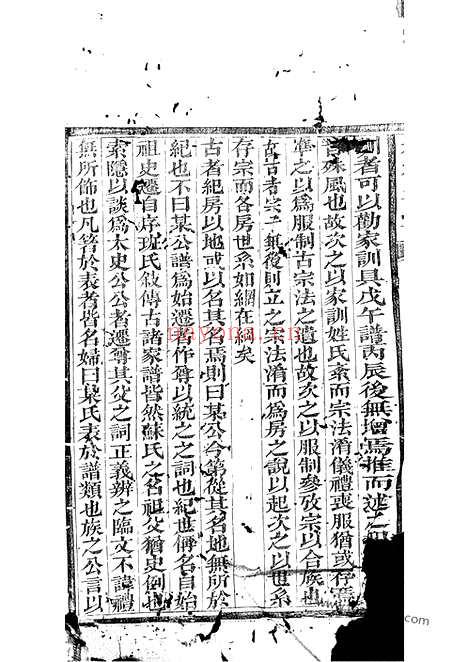 者可以勸家訓具戊午譜丙辰後無增焉推而述之
殊風也故次之以家訓姓氏紊而宗法淆儀禮喪服猶或存焉
準之以爲服制古宗法之遺也故次之以服制參攷宗以合族也
故古者宗無後則立之宗法淆而爲房之說以起次之以世系
存宗而各房世系如綱在綱矣
古者紀房以地或以名其名焉則曰某公今第從其名地無所於
紀也不曰某公譜爲始遷者作尊以統之之詞也紀世偁名自始
祖史遷自序班氏敘傳古諸家譜皆然蘇氏之名祖父猶史例也
索隱以談爲太史公公者遷尊其父之詞正義辨之臨文不諱禮
無所飾也凡箸於表者皆名婦曰某氏表於譜類也族之公言以
nayona.cn
mayona.com